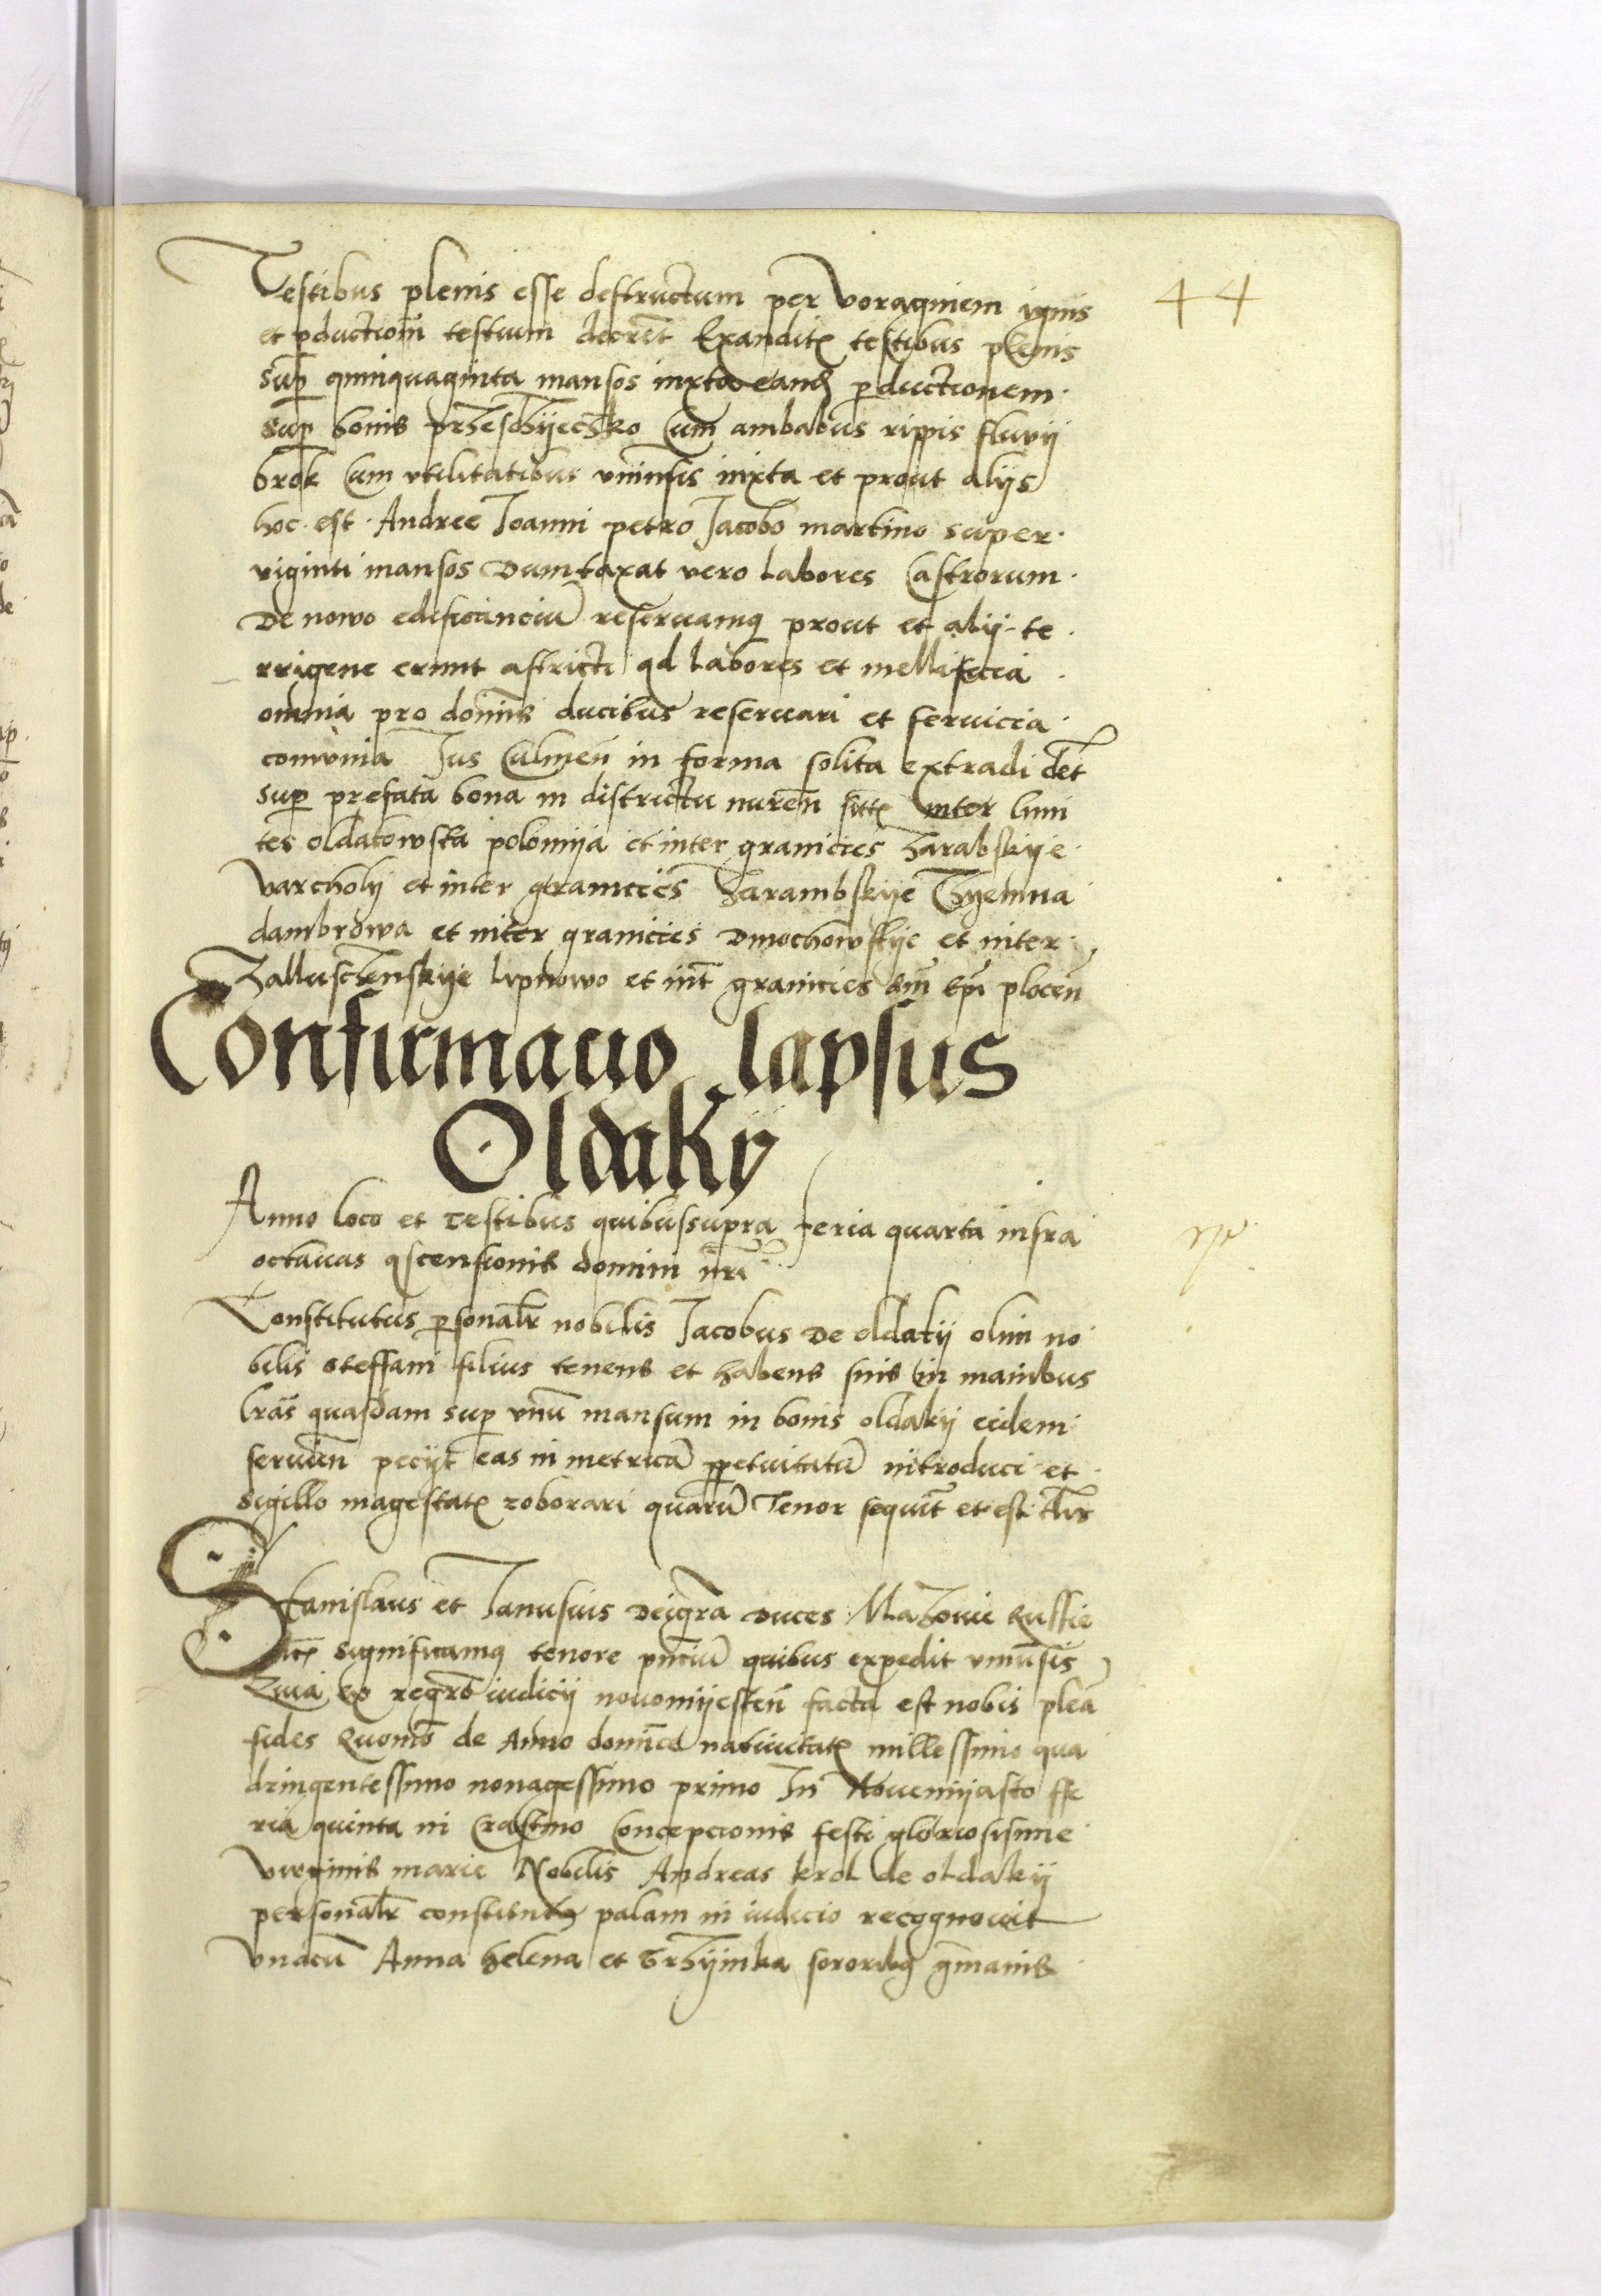 44
Testibus plenis esse destructum per voraginem ignis
et pductiom̄ testium decret̄ Exauditꝭ testibus plenis
sup̄ quinquaginta mansos iuxta eand̄ productionem
sup̄ bonis prheschÿechko Cum ambabus rippis fluvij
brok Cum vtilitatibus vniu̅sis iuxta et prout alijs
hoc est Andree Joanni petro Jacobo martino super
viginti mansos Dumtaxat vero labores Castrorum
De nowo edificanciu̅ reseruamꝰ prout et alij te
rrigene erunt astricti ad labores et mellificia
omnia pro dominis ducibus reseruari et seruicia
comunia Jus Culmen̄ in forma solita extradi debet
sup̄ prefata bona in districtu nuren̄ sitꝭ inter limi
tes oldakowska polomija et inter granicies Zarabskije
Warcholij et inter granicies Zarambskije Thyemna
dambrowa et inter granicies Dmochowskije et inter
Zalluschenskije lipnowo et int̄ granicies dm̄ Ep̄i plocen̄
Confirmacio lapsus
Oldakij
Anno loco et Testibus quibus supra feria quarta infra
octauas ascensionis domini nr̄i
Constitutus p̱sonalr̄ nobilis Jacobus De oldakij olim no
bilis Steffani filius tenens et habens suis in manibus
lr̄as quasdam sup̄ vnu̅ mansum in bonis oldakij eidem
seruien̄ pecijt eas in metrica̅ ꝑpetuitatu̅ introduci et
sigillo magestatꝭ roborari quaru̅ Tenor sequit̄ et est tlr̄
Stanislaus et Janusius Dei gr̄a Duces Mazouie Russie
etcꝭ significamꝰ tenore pn̄ciu̅ quibus expedit vniu̅sis
Quia ex regr̄o iudicij nouomijesten̄ facta est nobis plena
fides Quomō de Anno domice natiuitatꝭ millessimo qua
dringentessimo nonagessimo primo In Nouemijasto ffe
ria quinta in Crastino Concepcionis festi gloriosissime
virginis marie Nobilis Andreas krol de oldakij
personalr̄ constitutꝰ palam in iudicio recognouit
vnacu̅ Anna helena et Trhijmka sororibꝰ g̅manis